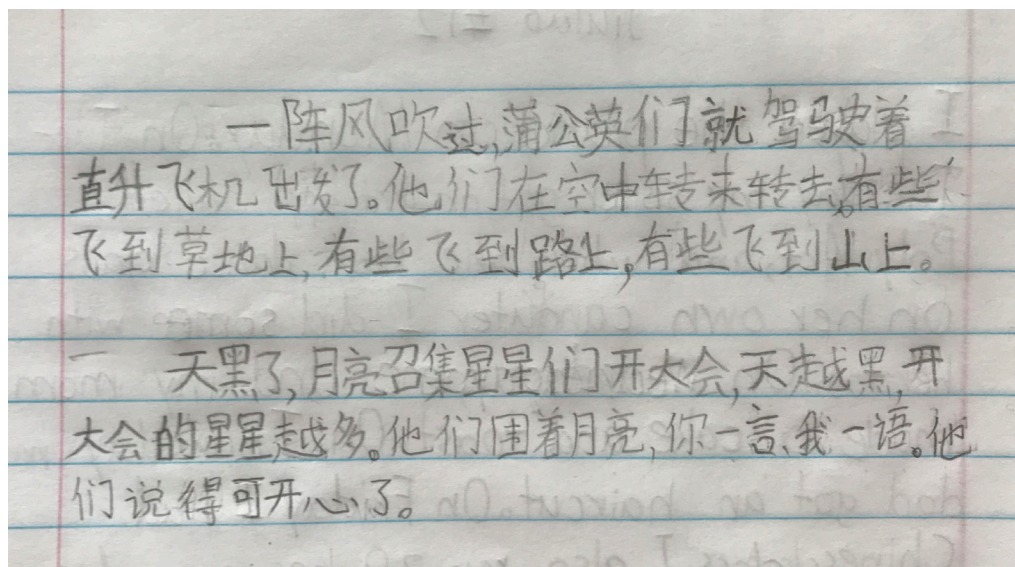 一阵风吹过,蒲公英们就驾驶着
直升飞机出发了。他们在空中转来转去。有些
飞到草地上,有些飞到路上,有些飞到山上。
天黑了,月亮召集星星们开大会,天越黑,开
大会的星星越多。他们围着月亮,你一言、我一语。他
们说得可开心了。